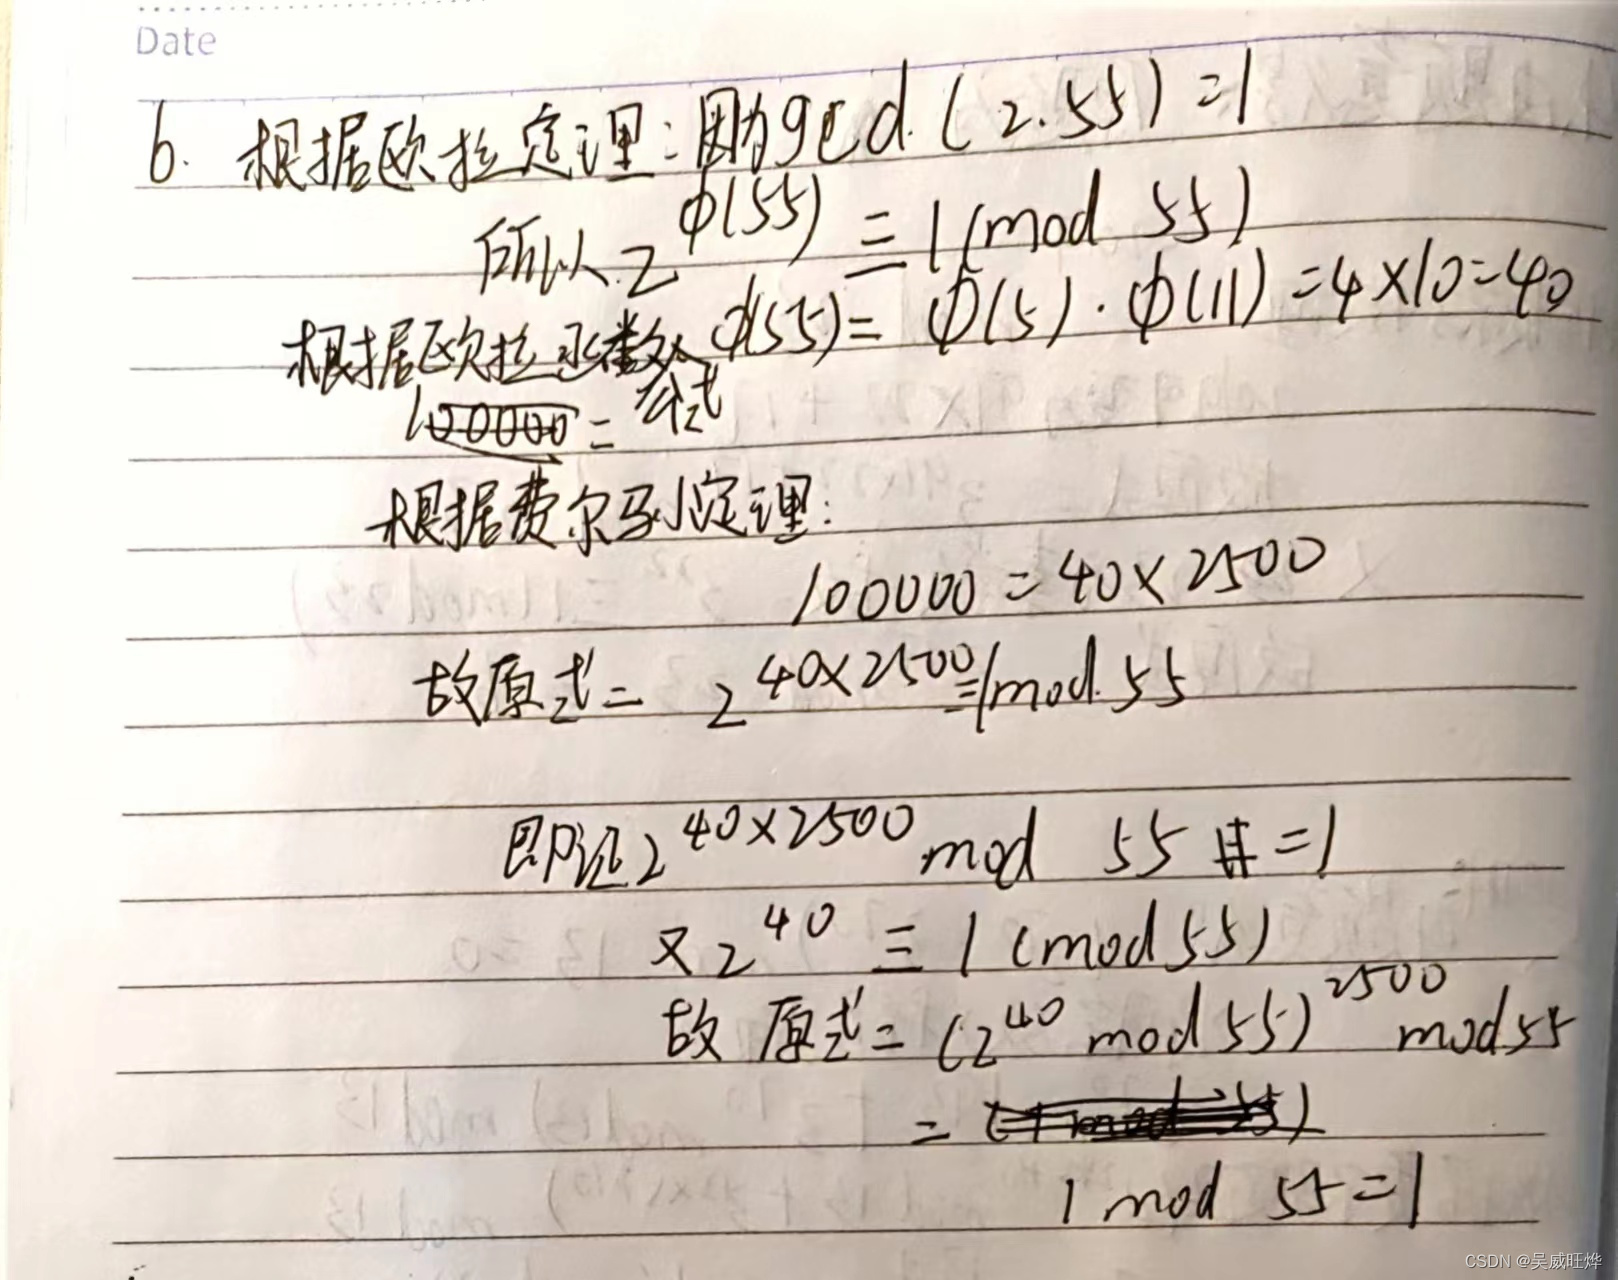 Date
6. 根据欧拉定理:因为gcd(2.55)=1
所以 2^φ(55) ≡ 1 (mod 55)
根据欧拉函数 φ(55)= φ(5)·φ(11)=4×10=40
公式
100000=
根据费尔马小定理:
100000=40×2500
故原式= 2^40×2500≡1mod 55
即证2^40×2500 mod 55 =1
又2^40 ≡ 1 (mod 55)
故 原式=(2^40 mod 55)^2500 mod 55
=
1 mod 55=1
CSDN @吴威旺烨